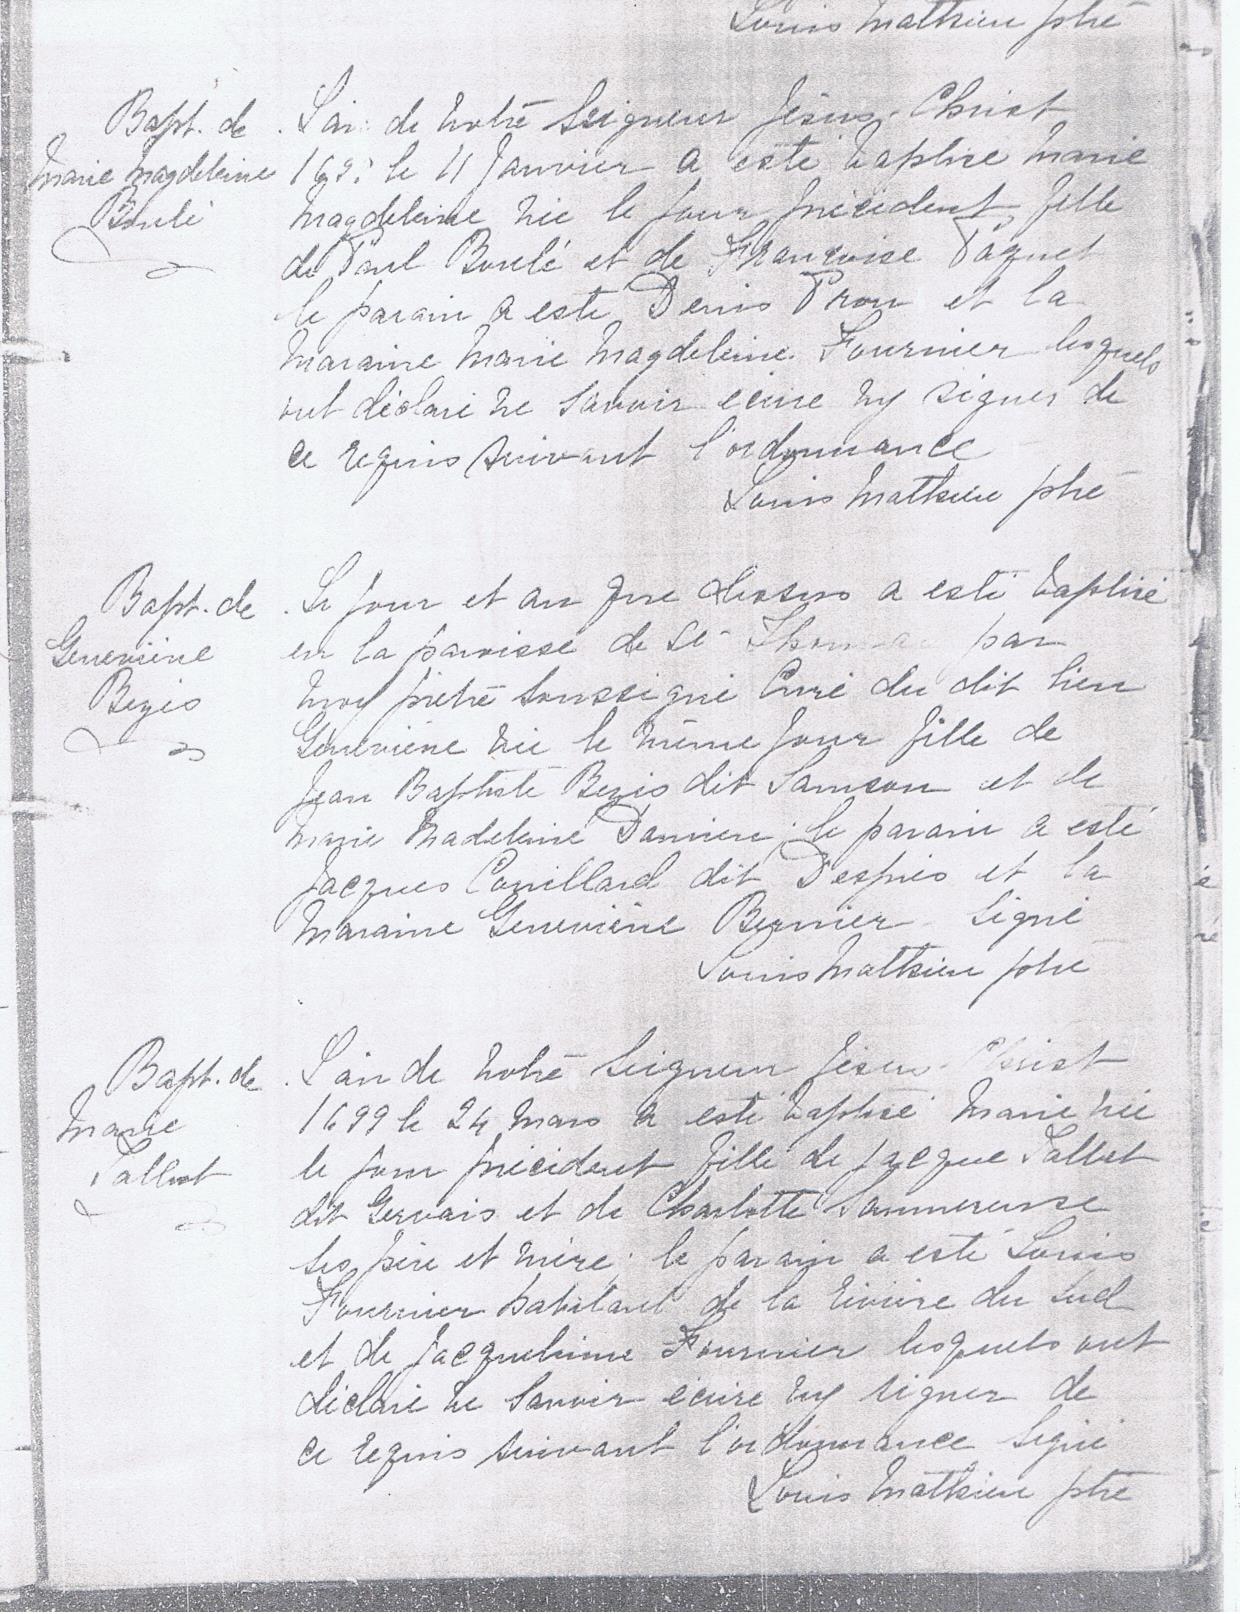 Louis Mathieu ptre
Bapt. de
Marie Magdeleine
Boulé
L'an de notre Seigneur Jésus-Christ
le 11 Janvier a esté baptisé Marie
Magdeleine née le jour précédent, fille
de Paul Boulé et de Françoise Paquet
le parain a esté Denis Prou et la
Maraine Marie Magdeleine Fournier lesquels
ont déclaré ne savoir écrire ny signer de
ce requis suivant l'ordonnance
Louis Mathieu ptre
Bapt. de
Geneviève
Bezis
Le jour et an que dessus a esté baptisé
en la paroisse de St Thomas par
moy prêtre soussigné Curé du dit lieu
Geneviève née le même jour fille de
Jean Baptiste Bezis dit Samson et de
Marie Madeleine ; le parain a esté
Jacques Couillard dit Després et la
Maraine Geneviève Bernier Signé
Louis Mathieu ptre
Bapt. de
Marie
Tallbot
L'an de notre Seigneur Jésus-Christ
1699 le 24 Mars a esté baptisé Marie née
le jour précédent fille de Jacque Tallbot
dit Gervais et de Charlotte Sommereuse
ses père et mère ; le parain a esté Louis
Fournier habitant de la rivière du Sud
et de Jacqueline Fournier lesquels ont
déclaré ne savoir écrire ny signer de
ce requis suivant l'ordonnance Signé
Louis Mathieu ptre